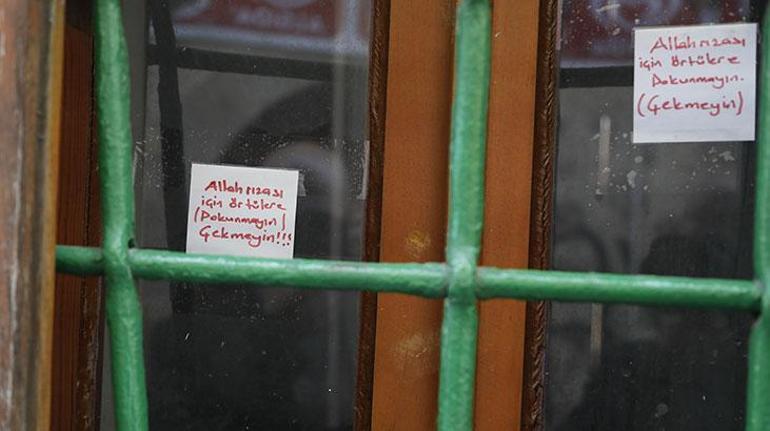 Allah rızası
için örtülere
(Dokunmayın)
Çekmeyin!!!
Allah rızası
için örtülere
Dokunmayın.
(Çekmeyin)